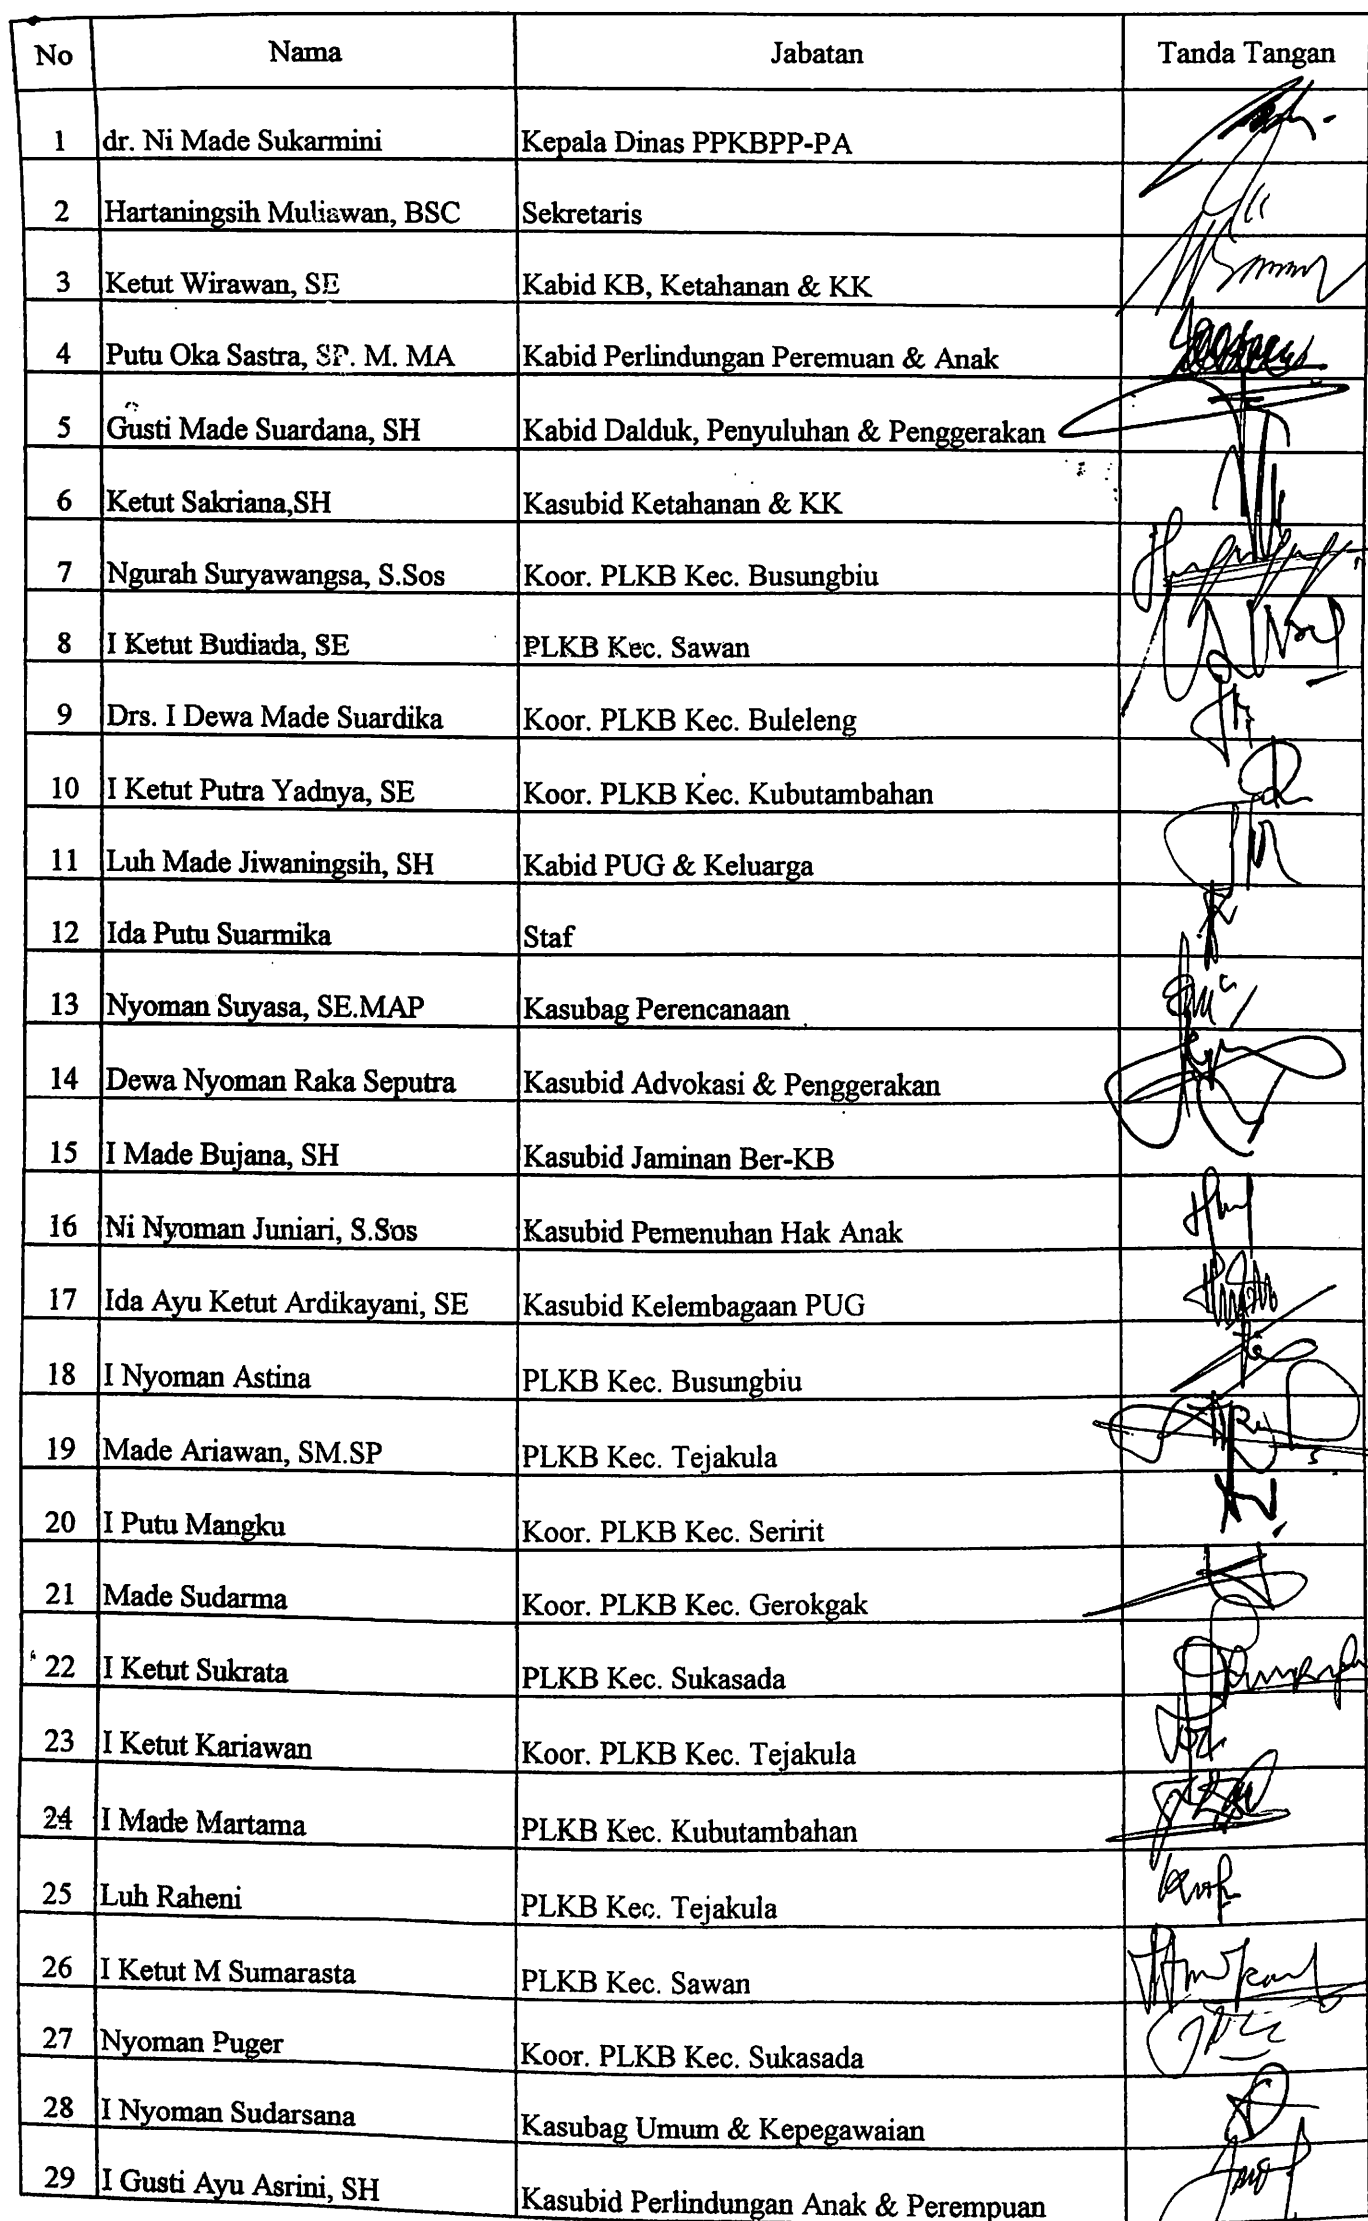 No Nama Jabatan Tanda Tangan
1 dr. Ni Made Sukarmini Kepala Dinas PPKBPP-PA
2 Hartaningsih Muliawan, BSC Sekretaris
3 Ketut Wirawan, SE Kabid KB, Ketahanan & KK
4 Putu Oka Sastra, SP. M. MA Kabid Perlindungan Peremuan & Anak
5 Gusti Made Suardana, SH Kabid Dalduk, Penyuluhan & Penggerakan
6 Ketut Sakriana,SH Kasubid Ketahanan & KK
7 Ngurah Suryawangsa, S.Sos Koor. PLKB Kec. Busungbiu
8 I Ketut Budiada, SE PLKB Kec. Sawan
9 Drs. I Dewa Made Suardika Koor. PLKB Kec. Buleleng
10 I Ketut Putra Yadnya, SE Koor. PLKB Kec. Kubutambahan
11 Luh Made Jiwaningsih, SH Kabid PUG & Keluarga
12 Ida Putu Suarmika Staf
13 Nyoman Suyasa, SE.MAP Kasubag Perencanaan
14 Dewa Nyoman Raka Seputra Kasubid Advokasi & Penggerakan
15 I Made Bujana, SH Kasubid Jaminan Ber-KB
16 Ni Nyoman Juniari, S.Sos Kasubid Pemenuhan Hak Anak
17 Ida Ayu Ketut Ardikayani, SE Kasubid Kelembagaan PUG
18 I Nyoman Astina PLKB Kec. Busungbiu
19 Made Ariawan, SM.SP PLKB Kec. Tejakula
20 I Putu Mangku Koor. PLKB Kec. Seririt
21 Made Sudarma Koor. PLKB Kec. Gerokgak
22 I Ketut Sukrata PLKB Kec. Sukasada
23 I Ketut Kariawan Koor. PLKB Kec. Tejakula
24 I Made Martama PLKB Kec. Kubutambahan
25 Luh Raheni PLKB Kec. Tejakula
26 I Ketut M Sumarasta PLKB Kec. Sawan
27 Nyoman Puger Koor. PLKB Kec. Sukasada
28 I Nyoman Sudarsana Kasubag Umum & Kepegawaian
29 I Gusti Ayu Asrini, SH Kasubid Perlindungan Anak & Perempuan